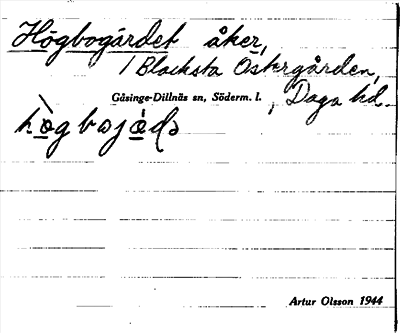 Högbogärdet åker,
/ Blacksta Östergården,
Gåsinge-Dillnäs sn, Söderm. l. , Daga hd.
hògbojáḍə
Artur Olsson 1944